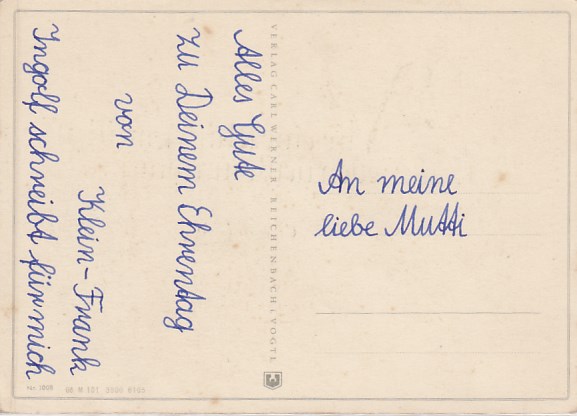 Alles Gute
zu Deinem Ehrentag
von
Klein-Frank
Ingolf schreibt für mich
VERLAG CARL WERNER · REICHENBACH I. VOGTL
An meine
liebe Mutti